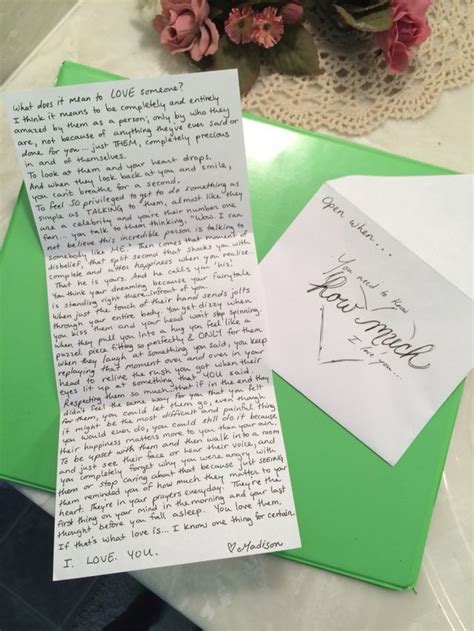 What does it mean to LOVE someone?
I think it means to be completely and entirely
amazed by them as a person; only by who they
are, not because of anything they've even said or
done for you... just THEM, completely precious
in and of themselves.
To look at them and your heart drops.
And when they look back at you and smile,
you can't breathe for a second.
To feel SO privileged to get to do something as
simple as TALKING to them, almost like they
are a celebrity and you're their number one
fan... you talk to them thinking, "Whoa I can
not believe this incredible person is talking to
somebody like ME." Then comes that moment of
disbelief, that split second that shocks you with
complete and utter happiness when you realize
That he is yours and he calls you 'his'.
You think your dreaming because your fairytale
is standing right there infront of you.
When just the touch of their hand sends jolts
through your entire body. You get dizzy when
you kiss them and your head won't stop spinning.
When they pull you into a hug you feel like a
puzzel piece fitting so perfectly & ONLY for them
When they laugh at something you said, you keep
replaying that moment over and over in your
head to relive the rush you got when their
eyes lit up at something that YOU said.
Respecting them so much that if in the end they
didn't feel the same way for you that you felt
for them, you could let them go, even though
it might be the most difficult and painful thing
you would ever do, you could still do it because
their happiness matters more to you than your own.
To be upset with them and then walk into a room
and just see their face or hear their voice, and
you completely forget why you were angry with
them or stop caring about that because just SEEING
them reminded you of how much they matter to your
heart. They're in your prayers everyday. They're the
first thing on your mind in the morning and your last
thought before you fall asleep. You love them.
If that's what love is... I know one thing for certain
I. LOVE. YOU.
♡Madison
Open when...
You need to know
how much
I love you...